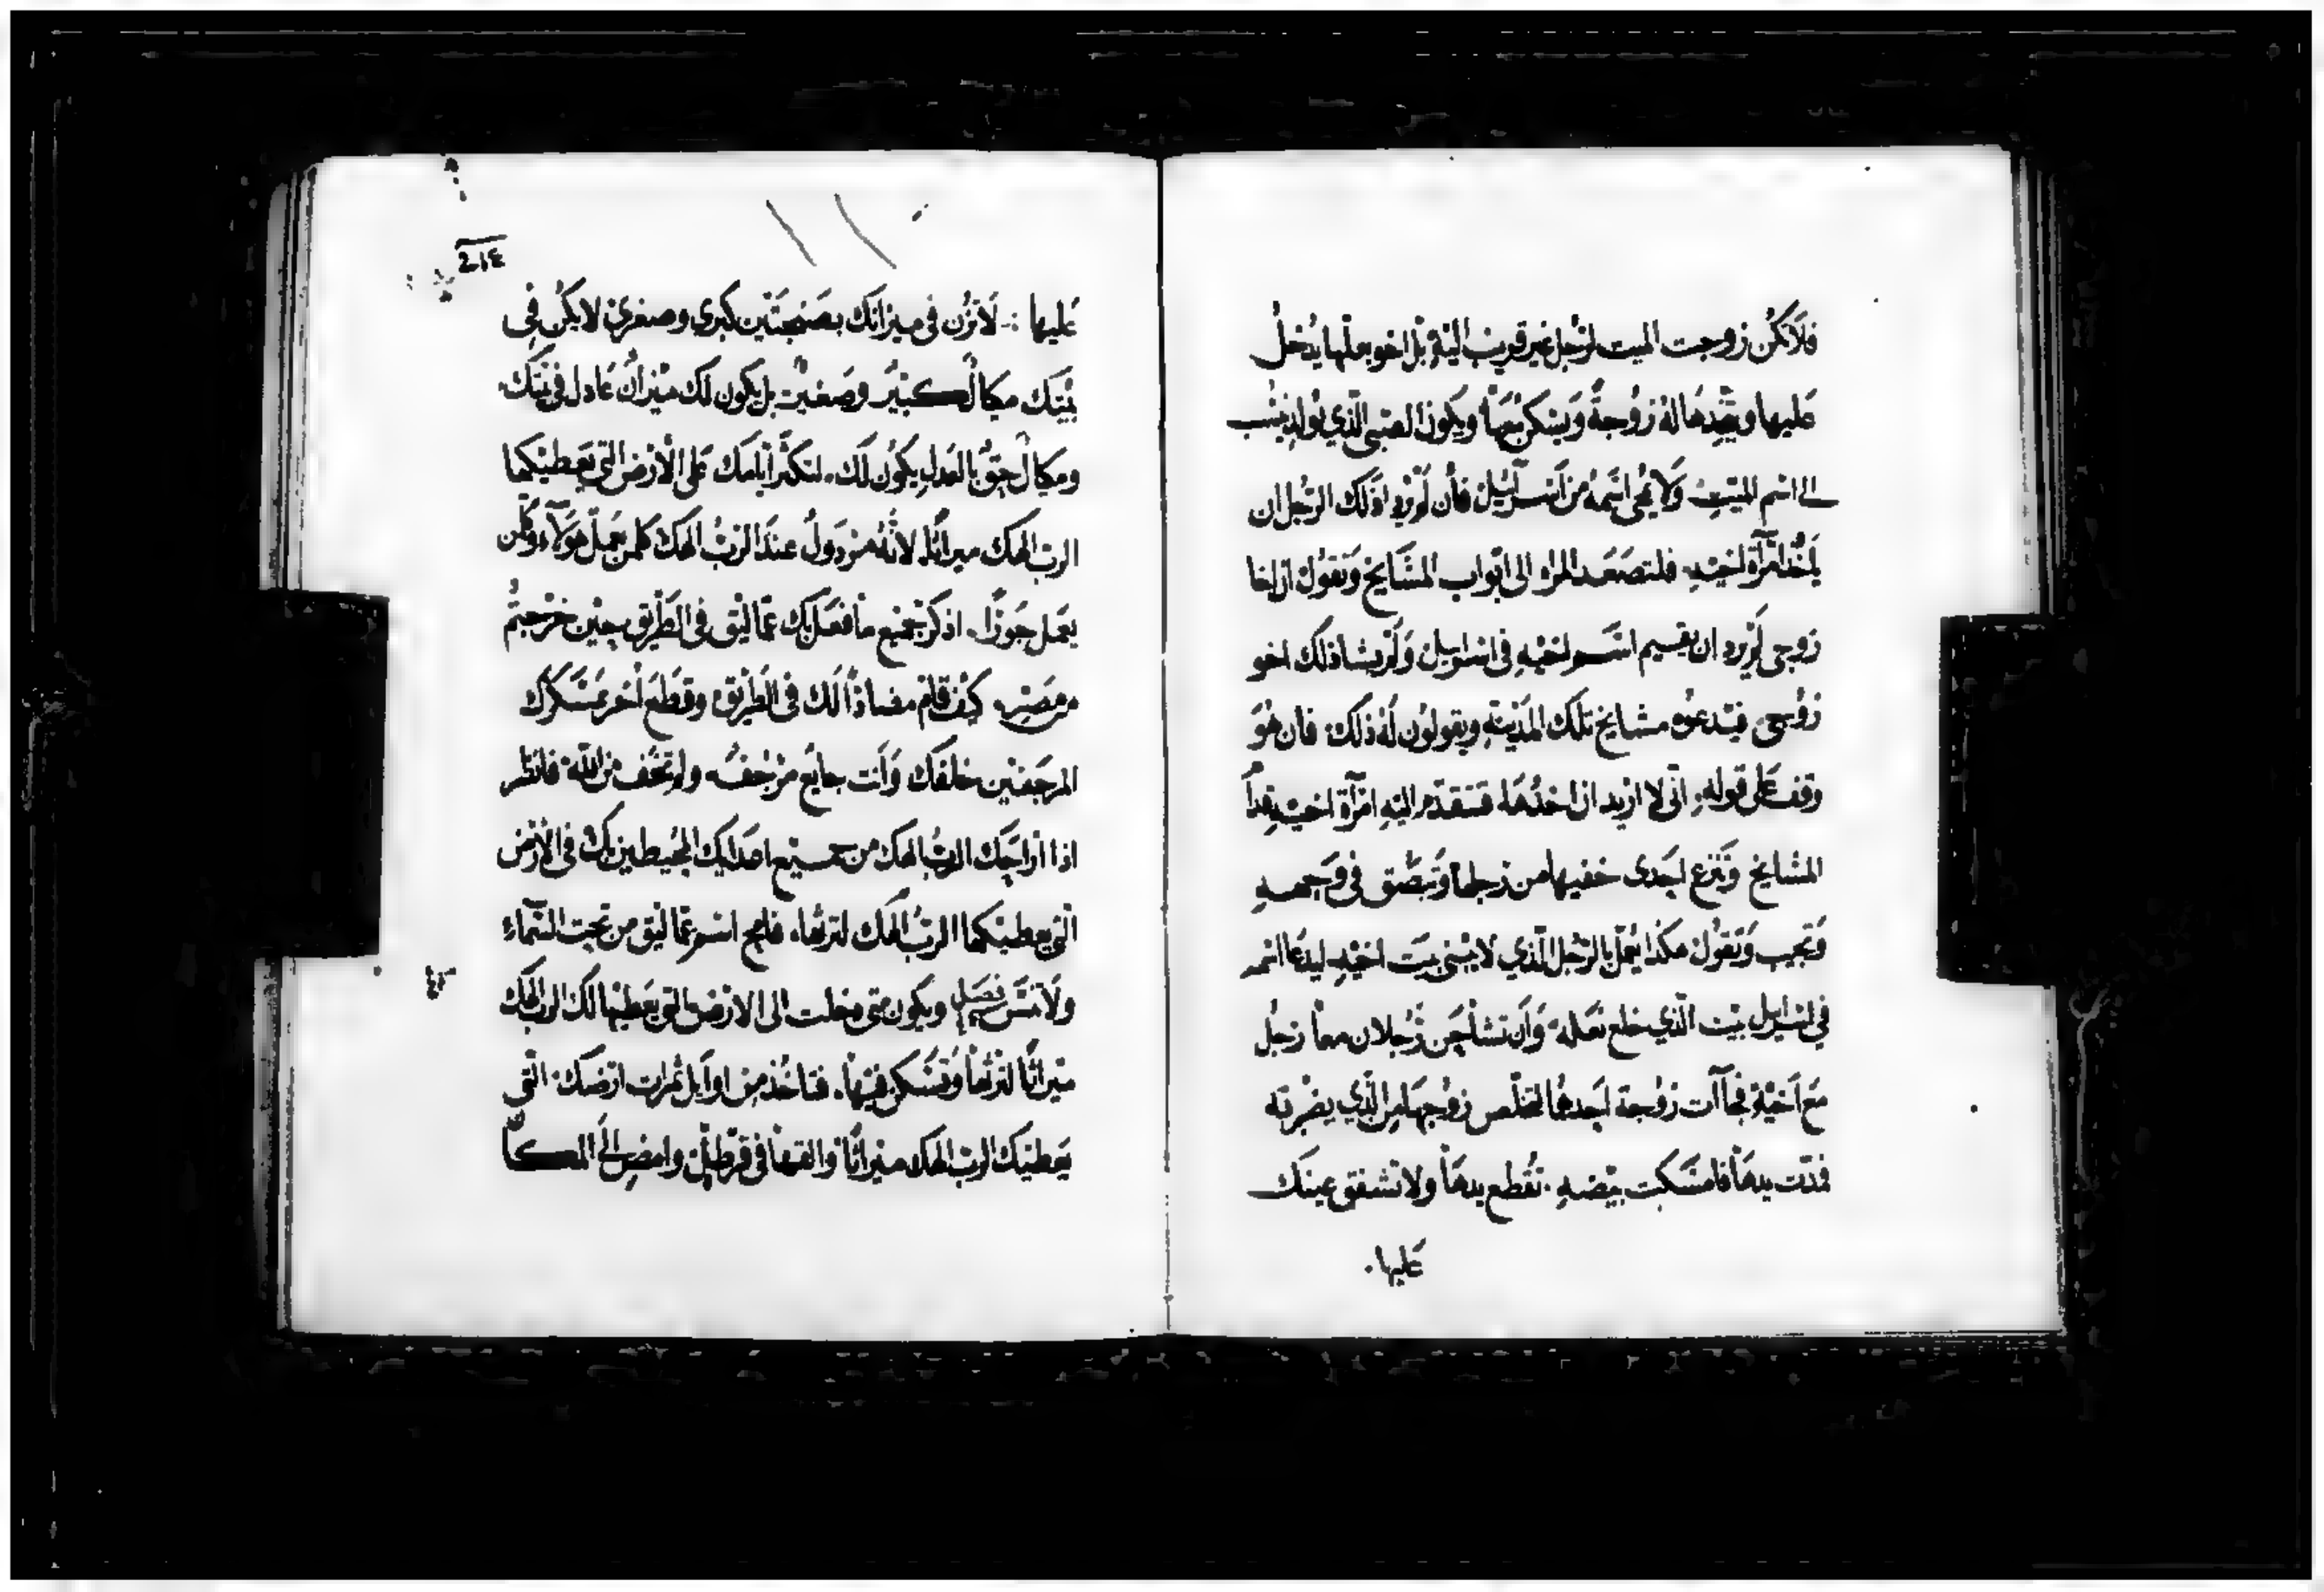 فلا تكن زوجت الميت لرجل غير قريب اليه بل اخو بعلها يدخل
عليها ويتخدها له زوجة ويسكن معها ويكون الصبي الذي يولد ينسب
الى اسم الميت ولا يمحى اسمه من اسرائيل فان لم يرد ذلك الرجل ان
ياخذ امرأة اخيه فلتصعد المراه الى ابواب المشايخ وتقول ان اخا
زوجي لم يرد ان يقيم اسم اخيه في اسراييل ولم يشا ذلك اخو
زوجي فيدعوه مشايخ تلك المدينة ويقولون له ذلك فان هو
وقف على قوله اني لا اريد ان اخدها فتتقدم اليه امرآة اخيه قدام
المشايخ وتنزع احدى خفيها من رجلها وتبصق في وجهه
وتجيب وتقول هكذا يعمل بالرجل الذي لا يبني بيت اخيه ليدعا اسمه
في اسراييل بيت الذي خلع نعله وان تشاجر رجلان معا رجل
مع اخيه فجاآت زوجة احدهما لتخلص زوجها من الذي يضربه
فمدت يدها فامسكت بيضه تقطع يدها ولا تشفق عينك
عليها
214
عليها لا تزن في ميزانك بصنجتين كبرى وصغرى لا يكن في
بيتك مكيال كبير وصغير بل يكون لك ميزان عادل في بيتك
ومكيال حق بالعدل يكون لك لتكثر ايامك على الارض التي يعطيكها
الرب الهك ميراثا لانه مردول عند الرب الهك كلمن يعمل هولآء وكلمن
يعمل جورا اذكر جميع ما فعل بك عماليق في الطريق حين خرجتم
من مصر كيف قام مضادا لك في الطريق وقطع اخر عسكرك
المرجفين خلفك وانت جايع مرجف ولم تخف من الله فانظر
اذا اراحك الرب الهك من جميع اعدايك المحيطين بك في الارض
التي يعطيكها الرب الهك لترثها فامح اسم عماليق من تحت السماء
ولا تنس فصل ويكون متى دخلت الى الارض التي يعطيها لك الرب الهك
ميراثا لترثها وتسكن فيها فتاخذ من اوايل ثمرات ارضك التي
يعطيك الرب الهك ميراثا والقها في قرطل وامض الى المكا